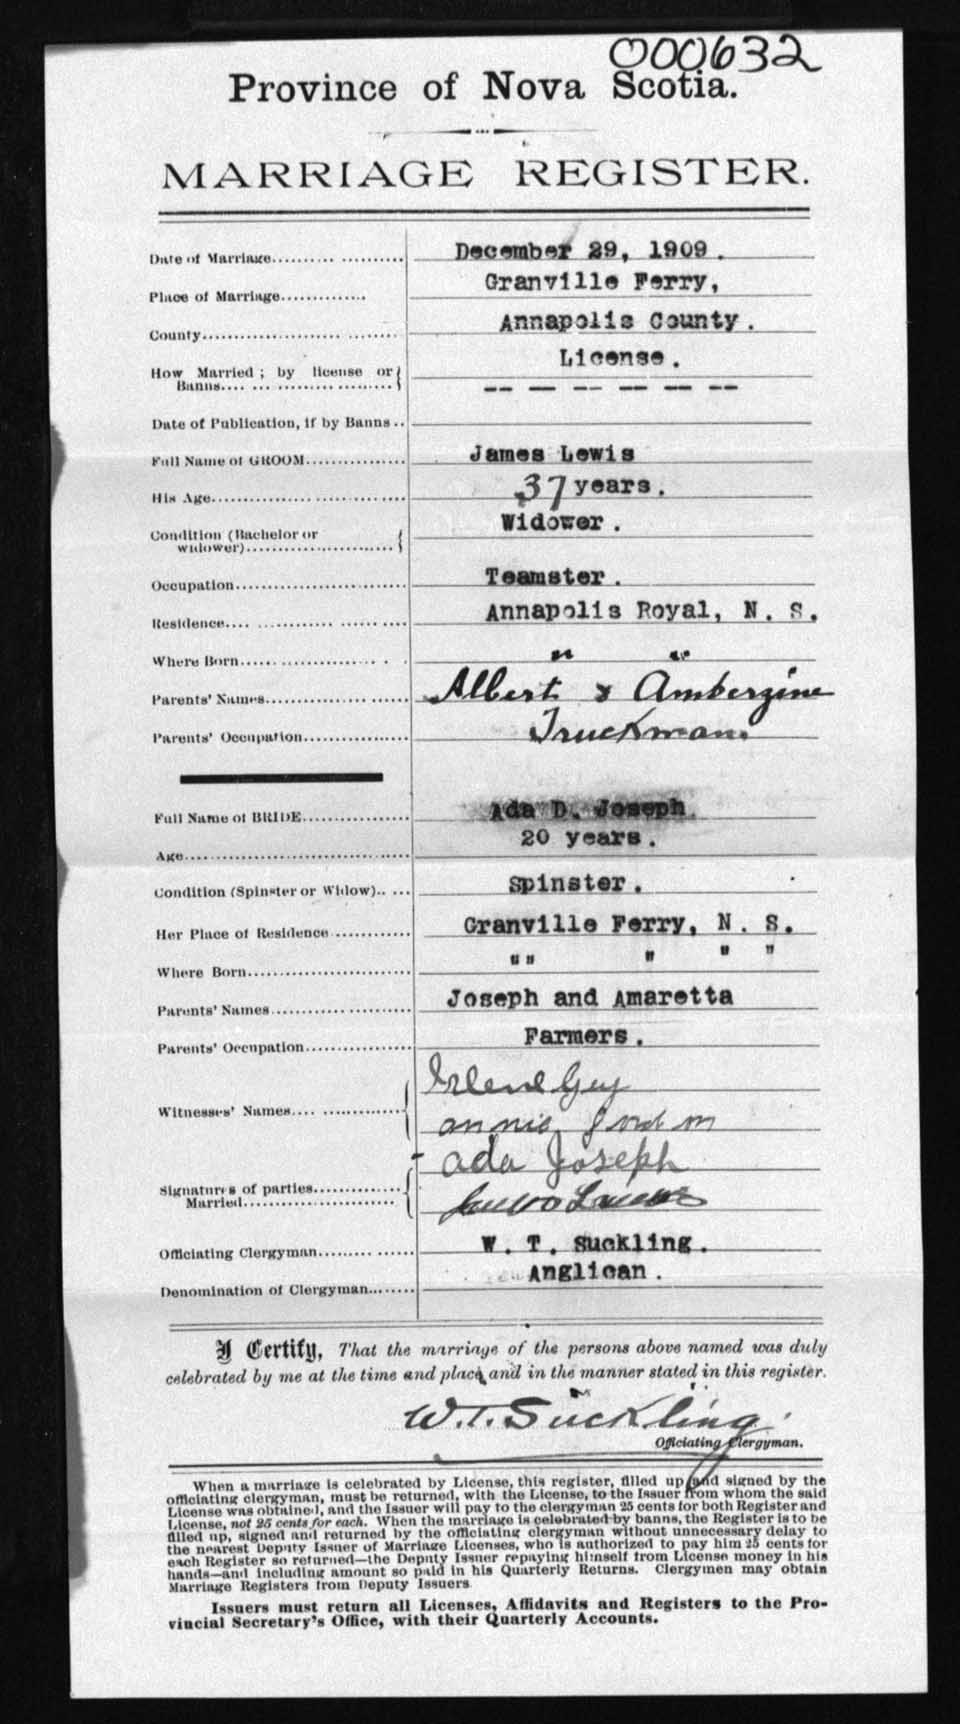 000632
Province of Nova Scotia.
MARRIAGE REGISTER.
Date of Marriage.......... .......... December 29, 1909.
Place of Marriage............. Granville Ferry,
County..................... .......... Annapolis County.
How Married ; by license or License.
Banns.... ... .......... .......... -- -- -- -- -- --
Date of Publication, if by Banns ..
Full Name of GROOM............... James Lewis
His Age............................. 37 years.
Condition (Bachelor or Widower.
widower)........................
Occupation.......................... Teamster.
Residence.... .............. ...... Annapolis Royal, N. S.
Where Born..................... . . " "
Parents' Names................ ...... Albert & Ambergine
Parents' Occupation................ Truckman.
Full Name of BRIDE................. Ada D. Joseph
Age................................... 20 years.
Condition (Spinster or Widow).. ... Spinster.
Her Place of Residence ............ Granville Ferry, N. S.
Where Born......................... "" " " "
Parents' Names..................... Joseph and Amaretta
Parents' Occupation................ Farmers.
Guy
Witnesses' Names.... ..............
annie
Ada Joseph
Signatures of parties..............
Married........................ James Lewis
Officiating Clergyman......... ...... W. T. Suckling.
Denomination of Clergyman........ Anglican.
I Certify, That the marriage of the persons above named was duly
celebrated by me at the time and place, and in the manner stated in this register.
W. T. Suckling.
Officiating Clergyman.
When a marriage is celebrated by License, this register, filled up and signed by the
officiating clergyman, must be returned, with the License, to the Issuer from whom the said
License was obtained, and the Issuer will pay to the clergyman 25 cents for both Register and
License, not 25 cents for each. When the marriage is celebrated by banns, the Register is to be
filled up, signed and returned by the officiating clergyman without unnecessary delay to
the nearest Deputy Issuer of Marriage Licenses, who is authorized to pay him 25 cents for
each Register so returned—the Deputy Issuer repaying himself from License money in his
hands—and including amount so paid in his Quarterly Returns. Clergymen may obtain
Marriage Registers from Deputy Issuers.
Issuers must return all Licenses, Affidavits and Registers to the Pro-
vincial Secretary's Office, with their Quarterly Accounts.